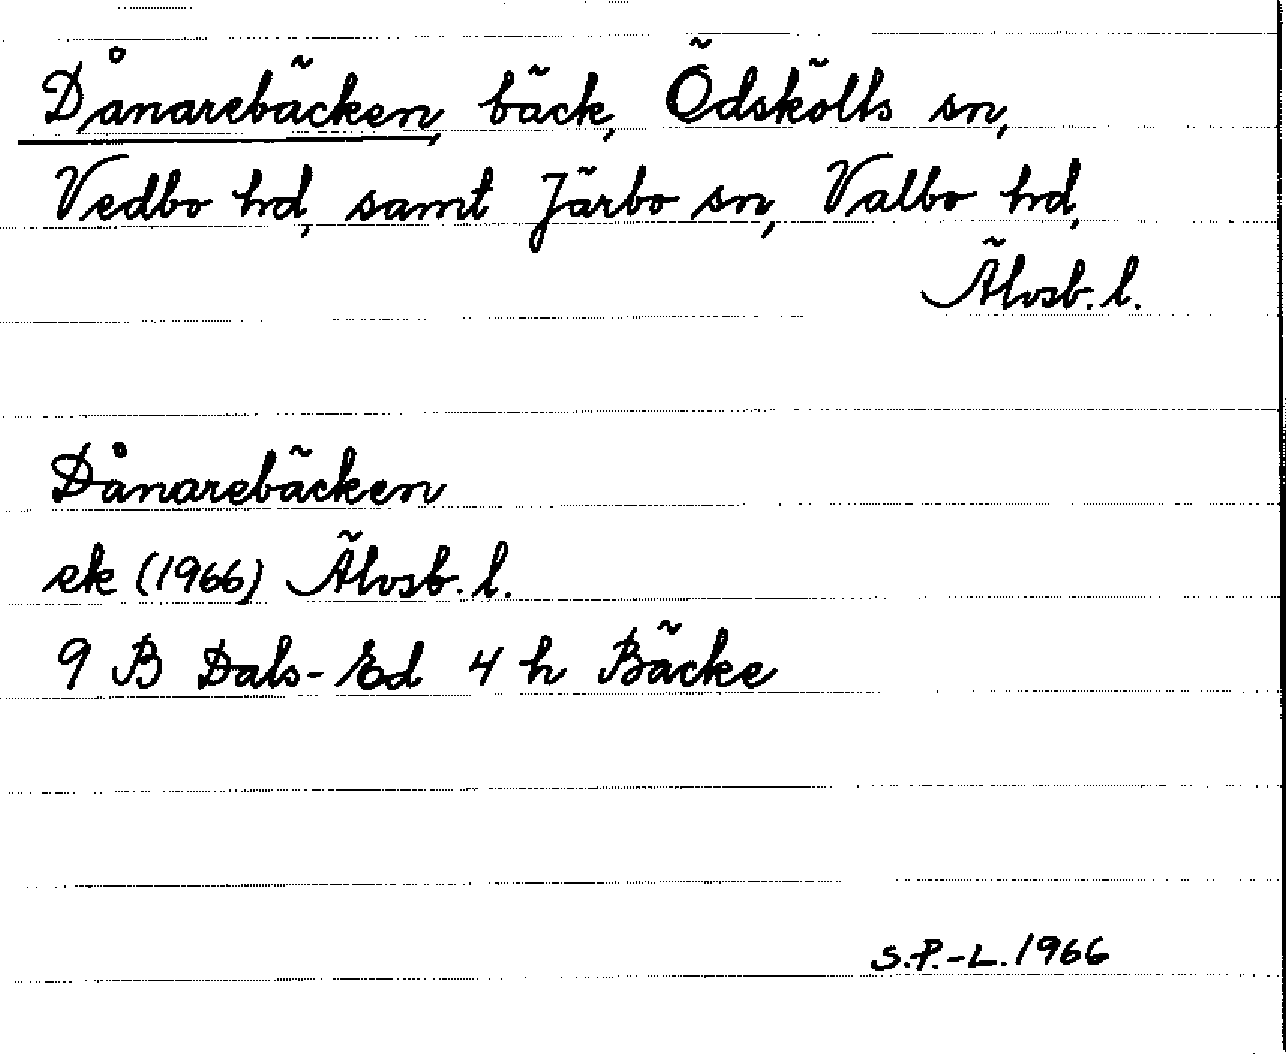 Dånarebäcken, bäck, Ödskölts sn,
Vedbo hd, samt Järbo sn, Valbo hd,
Älvsb. l.
Dånarebäcken
ek (1966) Älvsb. l.
9 B Dals-Ed 4 h Bäcke
S.P.-L. 1966